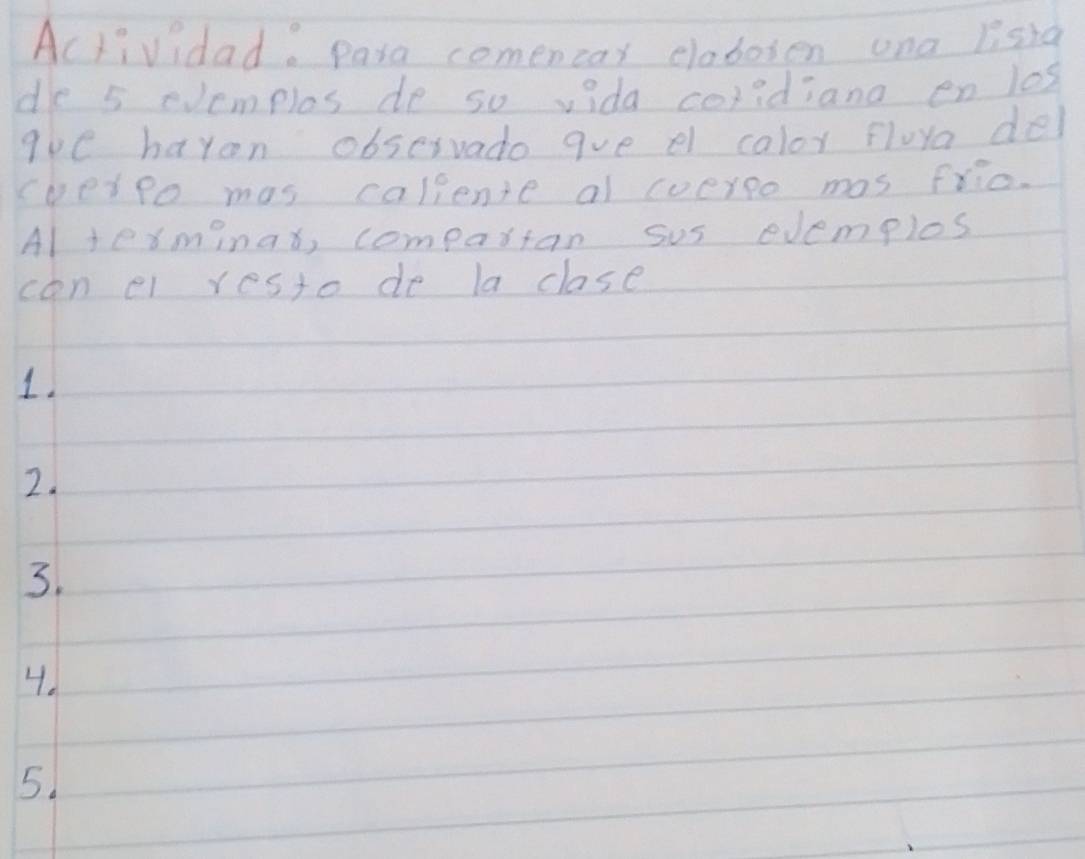 Actividad: Para comenzar elaboren una lista
de 5 ejemplos de su vida cotidiana en los
que hayan observado que el calor fluya del
cuerpo mas caliente al cuerpo mas frio.
Al terminar, compartan sus ejemplos
con el resto de la clase
1.
2.
3.
4.
5.